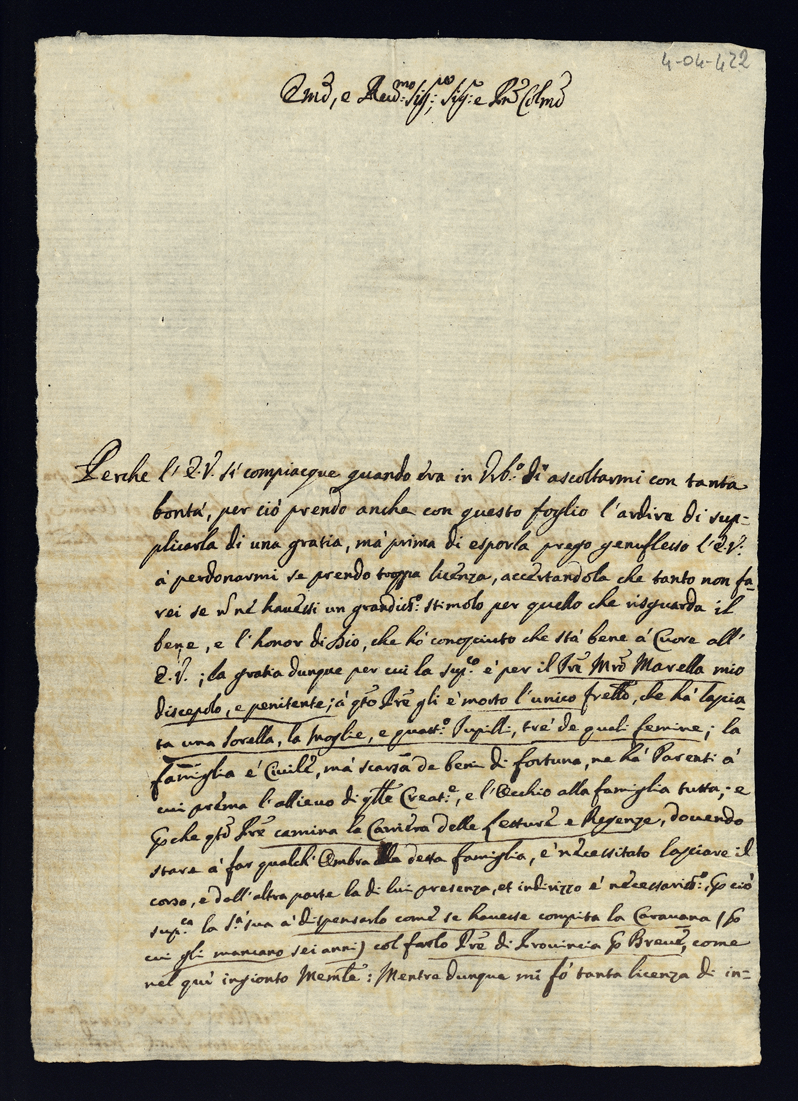 4-04-422
Em̄o, e Reud.mo Sig.re, Sig.r e Pn̄e Colm̄o
Perche l'E.V. si compiacque quando éra in Vrb.o di ascoltarmi con tanta
bontá, per ció prendo anche con questo foglio l'ardire di sup=
plicarla di una gratia, má prima di esporla prego genuflesso l'E.V.
á perdonarmi se prendo troppa licenza, accertandola che tanto non fa=
rei se nō né hauessi un grandiss.o stimolo per quello che risguarda il
bene, e l'honor di Dio, che hó conosciuto che stá bene á Cuore all'
E.V.; la gratia dunque per cui la sup.co é per il Prē Mrō Marella mio
discepolo, e penitente; á qsto Prē gli é morto l'unico frello, che há lascia=
ta una Sorella, la Moglie, e quatt.o Pupilli, tré de quali femine; la
famiglia é Ciuile, má scarsa de beni di fortuna, ne há Parenti á
cui préma l'allieuo di qlle Creat.e, e l'Occhio alla famiglia tutta; e
p̄che qsto Prē camina la Carriera delle Letture e Regenze, douendo
stare á far qualch'Ombra alla detta famiglia, é necessitato lasciare il
corso, e dall'altra parte la di lui presenza, et indirizzo é necessariss.o; p̄ ció
sup.ca la S.tá sua á dispensarlo come se hauesse compita la Carauana (p̄
cui gli mancano sei anni) col farlo Prē di Prouincia p̄ Breue, come
nel qui ingionto Memle: Mentre dunque mi fó tanta licenza di in=